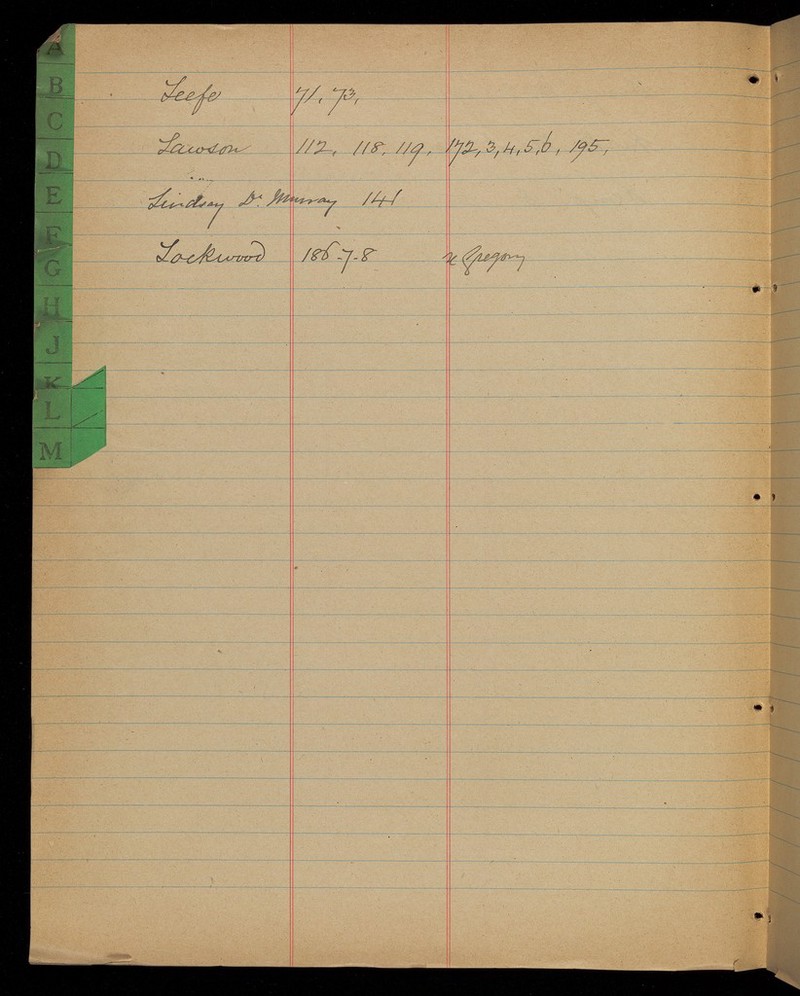 A
B
C
D
E
F
G
H
J
K
L
M
Leefe 71, 73,
Lawson 112, 118, 119, 172,3,4,5,6, 195,
Lindsay Dr. Murray 141
Lockwood 186-7-8 x Gregory